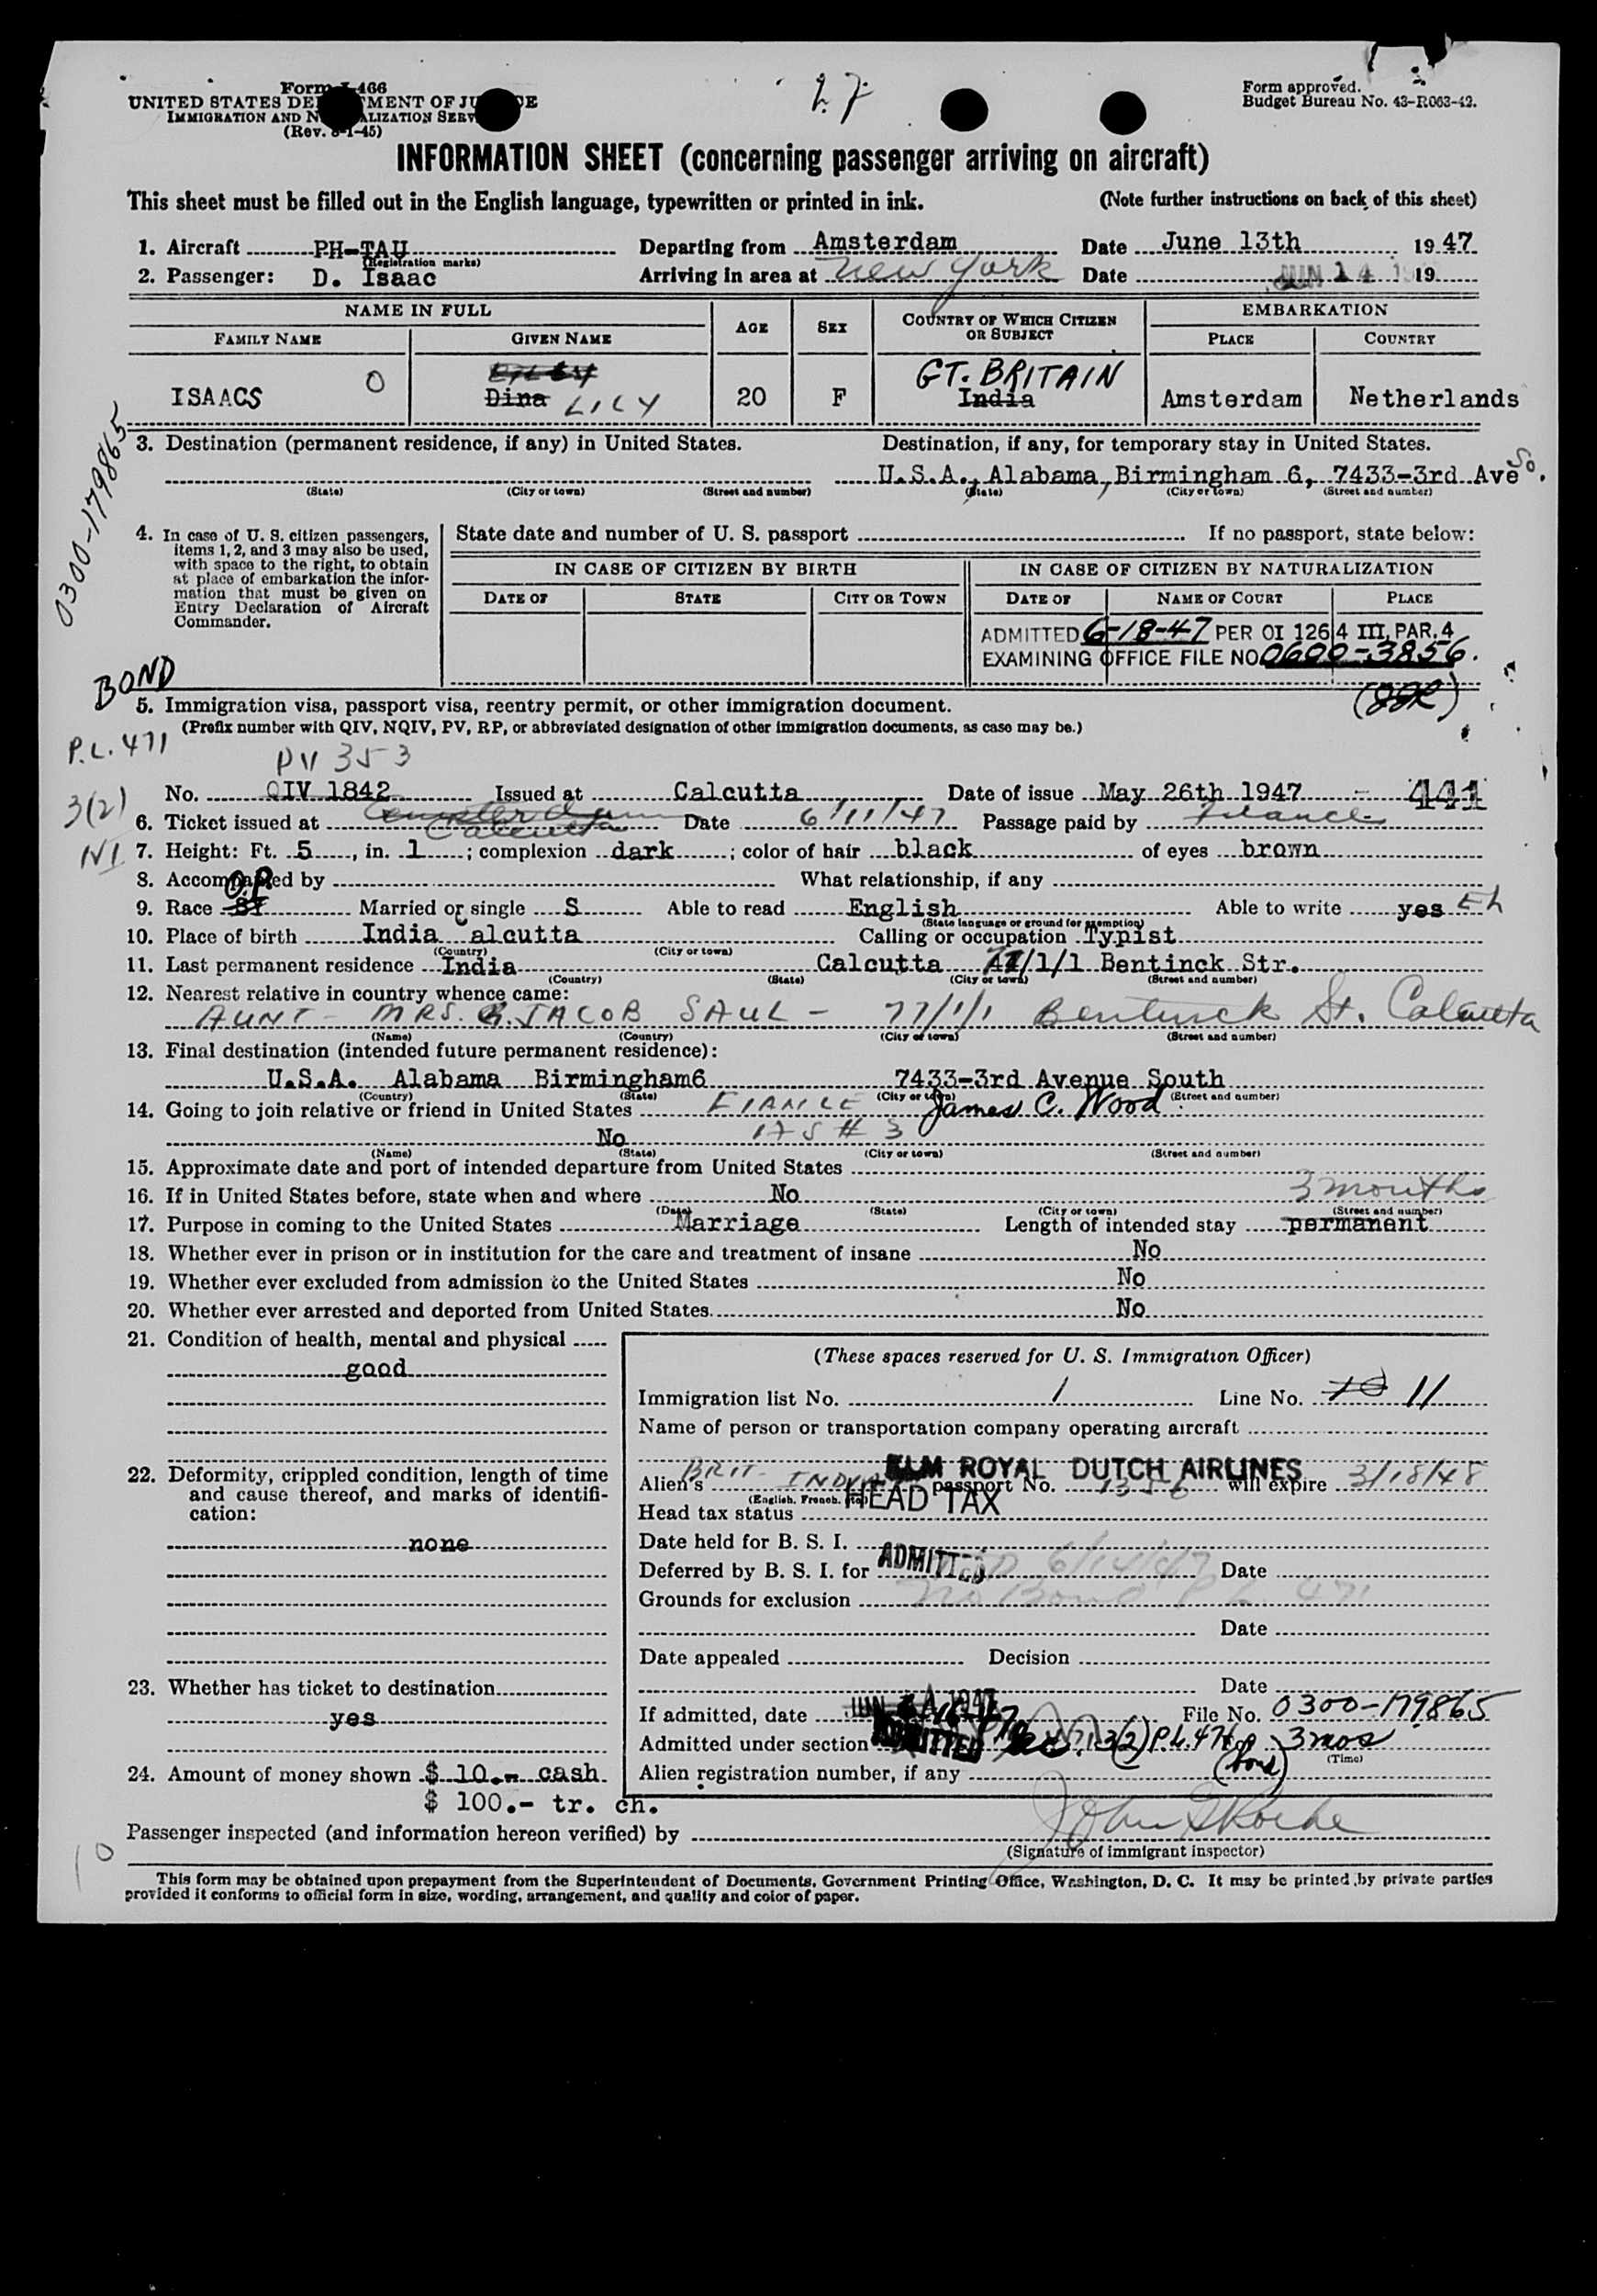 27
Form I-466
UNITED STATES DEPARTMENT OF JUSTICE
IMMIGRATION AND NATURALIZATION SERVICE
(Rev. 8-1-45)
Form approved.
Budget Bureau No. 43-R063-42.
INFORMATION SHEET (concerning passenger arriving on aircraft)
This sheet must be filled out in the English language, typewritten or printed in ink. (Note further instructions on back of this sheet)
1. Aircraft PH-TAU Departing from Amsterdam Date June 13th 1947
(Registration marks)
2. Passenger: D. Isaac Arriving in area at New York Date JUN 14 19
NAME IN FULL AGE SEX COUNTRY OF WHICH CITIZEN OR SUBJECT EMBARKATION
FAMILY NAME GIVEN NAME PLACE COUNTRY
GT. BRITAIN
ISAACS O Dina LILY 20 F India Amsterdam Netherlands
0300-179865
3. Destination (permanent residence, if any) in United States. Destination, if any, for temporary stay in United States.
U.S.A., Alabama, Birmingham 6, 7433-3rd Ave So.
(State) (City or town) (Street and number) (State) (City or town) (Street and number)
4. In case of U. S. citizen passengers, items 1, 2, and 3 may also be used, with space to the right, to obtain at place of embarkation the information that must be given on Entry Declaration of Aircraft Commander.
State date and number of U. S. passport If no passport, state below:
IN CASE OF CITIZEN BY BIRTH IN CASE OF CITIZEN BY NATURALIZATION
DATE OF STATE CITY OR TOWN DATE OF NAME OF COURT PLACE
ADMITTED 6-18-47 PER OI 1264 III, PAR. 4
EXAMINING OFFICE FILE NO. 0600-3856.
BOND
5. Immigration visa, passport visa, reentry permit, or other immigration document.
(Prefix number with QIV, NQIV, PV, RP, or abbreviated designation of other immigration documents, as case may be.)
P.L. 471
PV 353
No. QIV 1842 Issued at Calcutta Date of issue May 26th 1947 - 441
3(2)
6. Ticket issued at Calcutta Date 6/11/47 Passage paid by Fiance
NI
7. Height: Ft. 5, in. 1; complexion dark; color of hair black of eyes brown
8. Accompanied by What relationship, if any
O.P.
9. Race Married or single S Able to read English Able to write yes Eh
(State language or ground for exemption)
10. Place of birth India Calcutta Calling or occupation Typist
(Country) (City or town)
11. Last permanent residence India Calcutta 77/1/1 Bentinck Str.
(Country) (State) (City or town) (Street and number)
12. Nearest relative in country whence came:
AUNT - MRS. R. JACOB SAUL - 77/1/1 Bentinck St. Calcutta
(Name) (Country) (City or town) (Street and number)
13. Final destination (intended future permanent residence):
U.S.A. Alabama Birmingham6 7433-3rd Avenue South
(Country) (State) (City or town) (Street and number)
14. Going to join relative or friend in United States FIANCE James C. Wood
No 17 S # 3
(Name) (State) (City or town) (Street and number)
15. Approximate date and port of intended departure from United States
16. If in United States before, state when and where No 3 months
(Date) (State) (City or town) (Street and number)
17. Purpose in coming to the United States Marriage Length of intended stay permanent
18. Whether ever in prison or in institution for the care and treatment of insane No
19. Whether ever excluded from admission to the United States No
20. Whether ever arrested and deported from United States. No
21. Condition of health, mental and physical
good
(These spaces reserved for U. S. Immigration Officer)
Immigration list No. 1 Line No. 10 11
Name of person or transportation company operating aircraft
KLM ROYAL DUTCH AIRLINES
22. Deformity, crippled condition, length of time and cause thereof, and marks of identification:
none
Alien's BRIT. INDIA passport No. 1356 will expire 3/18/48
(English, French, etc.)
Head tax status HEAD TAX
Date held for B. S. I.
Deferred by B. S. I. for ADMITTED 6/14/47 Date
Grounds for exclusion No Bond P L. 471
Date
Date appealed Decision
23. Whether has ticket to destination
yes
Date
If admitted, date JUN 1947 File No. 0300-179865
Admitted under section ADMITTED 3(2) P.L. 471 3 mos
(Time)
(bond)
24. Amount of money shown $ 10.- cash
$ 100.- tr. ch.
Alien registration number, if any
Passenger inspected (and information hereon verified) by John Roche
(Signature of immigrant inspector)
10
This form may be obtained upon prepayment from the Superintendent of Documents, Government Printing Office, Washington, D. C. It may be printed by private parties
provided it conforms to official form in size, wording, arrangement, and quality and color of paper.